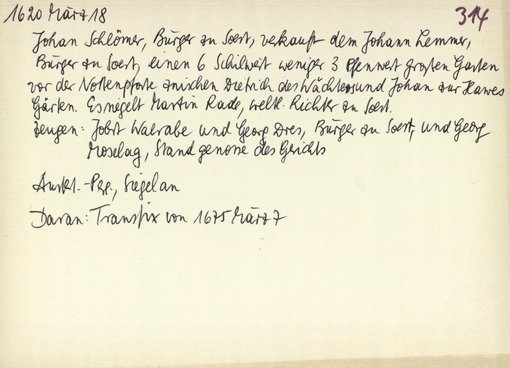 1620 März 18
314
Johan Schlömer, Bürger zu Soest, verkauft dem Johann Lemmer,
Bürger zu Soest, einen 6 Schilweit weniger 3 Pfennwert großen Garten
vor der Nottenpforte zwischen Dietrich des Wächters und Johan zur Hawes
Gärten. Es siegelt Martin Rade, weltl. Richter zu Soest.
Zeugen: Jobst Walrabe und Georg Dres, Bürger zu Soest, und Georg
Moselag, Standgenosse des Gerichts
Ausf.-Perg., Siegel an
Daran: Transfix von 1675 März 7